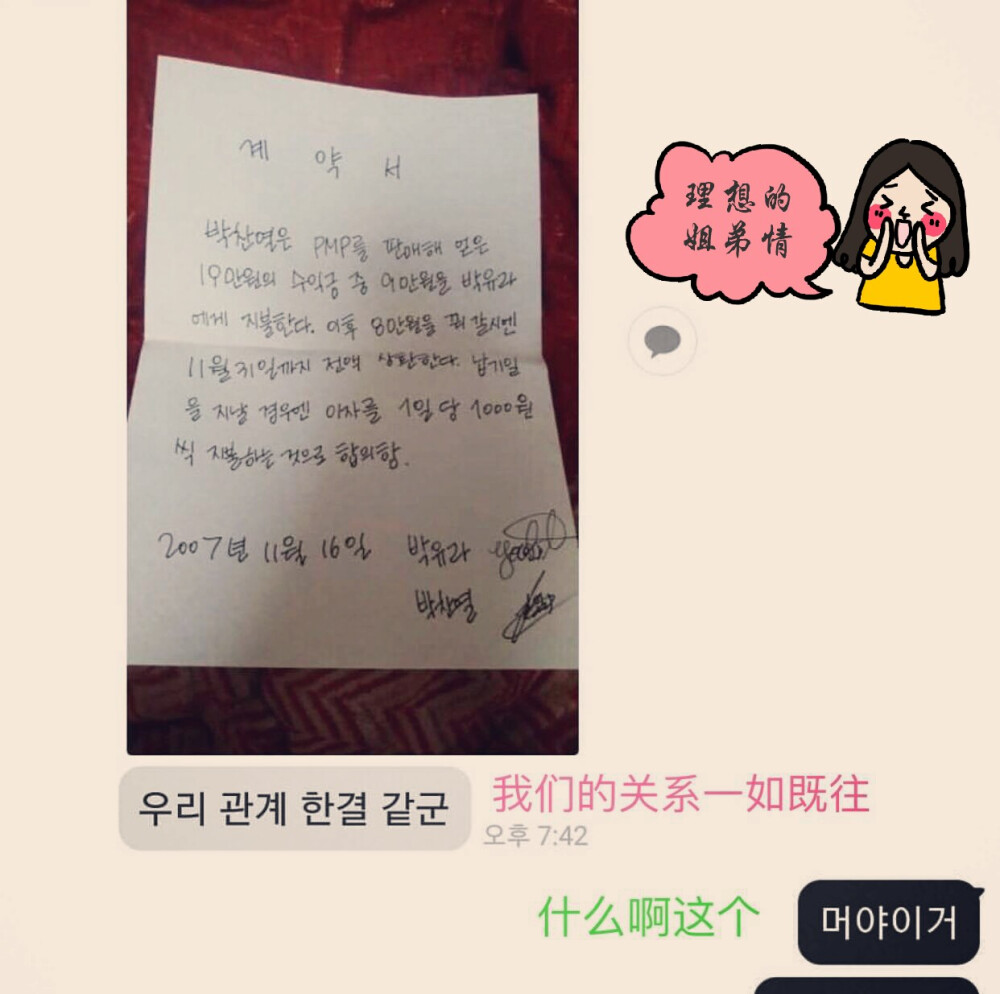 계 약 서
박찬열은 PMP를 판매해 얻은
19만원의 수익금 중 9만원을 박유라
에게 지불한다. 이후 8만원을 꿔 갈시엔
11월 31일까지 전액 상환한다. 납기일
을 지날 경우엔 이자를 1일 당 1000원
씩 지불하는 것으로 합의함.
2007년 11월 16일 박유라
박찬열
理想的
姐弟情
우리 관계 한결 같군
我们的关系一如既往
오후 7:42
什么啊这个
머야이거